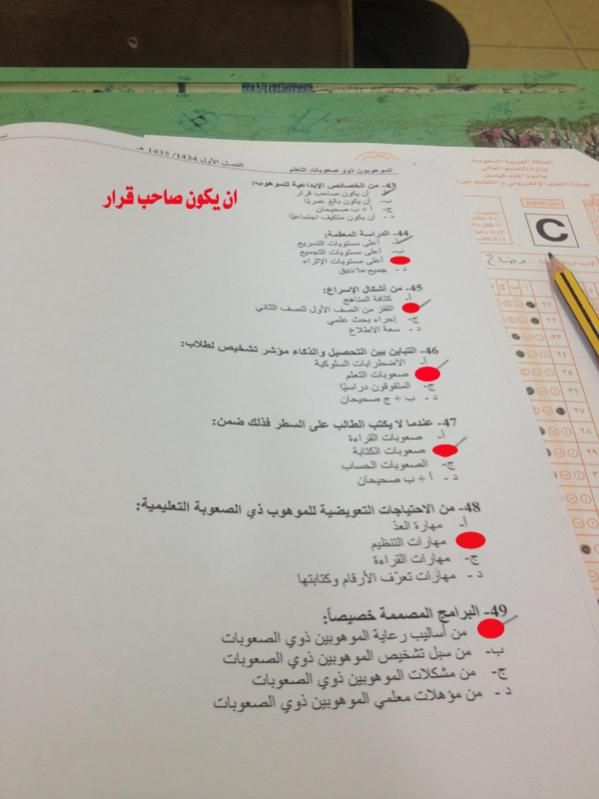 الموهوبون ذوو صعوبات التعلم
الفصل الأول 1434/ 1435 هـ
المملكة العربية السعودية
وزارة التعليم العالي
جامعة الملك فيصل
عمادة التعليم الإلكتروني و التعليم عن
C
ان يكون صاحب قرار
43- من الخصائص الإبداعية للموهوب:
أ- أن يكون صاحب قرار
ب- أن يكون بالغ عمريًا
ج- أ + ب صحيحان
د - أن يكون متكيف اجتماعيًا
44- الدراسة المعظمة:
أ- أعلى مستويات التسريع
ب- أعلى مستويات التجميع
أعلى مستويات الإثراء
د - جميع ما سبق
45- من أشكال الإسراع:
أ- كثافة المناهج
القفز من الصف الأول للصف الثاني
ج- إجراء بحث علمي
د - سعة الاطلاع
46- التباين بين التحصيل والذكاء مؤشر تشخيص لطلاب:
أ- الاضطرابات السلوكية
صعوبات التعلم
ج- المتفوقون دراسيًا
د - ب + ج صحيحان
47- عندما لا يكتب الطالب على السطر فذلك ضمن:
أ- صعوبات القراءة
صعوبات الكتابة
ج- الصعوبات الحساب
د - أ + ب صحيحان
48- من الاحتياجات التعويضية للموهوب ذي الصعوبة التعليمية:
أ- مهارة العدّ
مهارات التنظيم
ج- مهارات القراءة
د - مهارات تعرّف الأرقام وكتابتها
49- البرامج المصممة خصيصاً:
من أساليب رعاية الموهوبين ذوي الصعوبات
ب- من سبل تشخيص الموهوبين ذوي الصعوبات
ج- من مشكلات الموهوبين ذوي الصعوبات
د - من مؤهلات معلمي الموهوبين ذوي الصعوبات